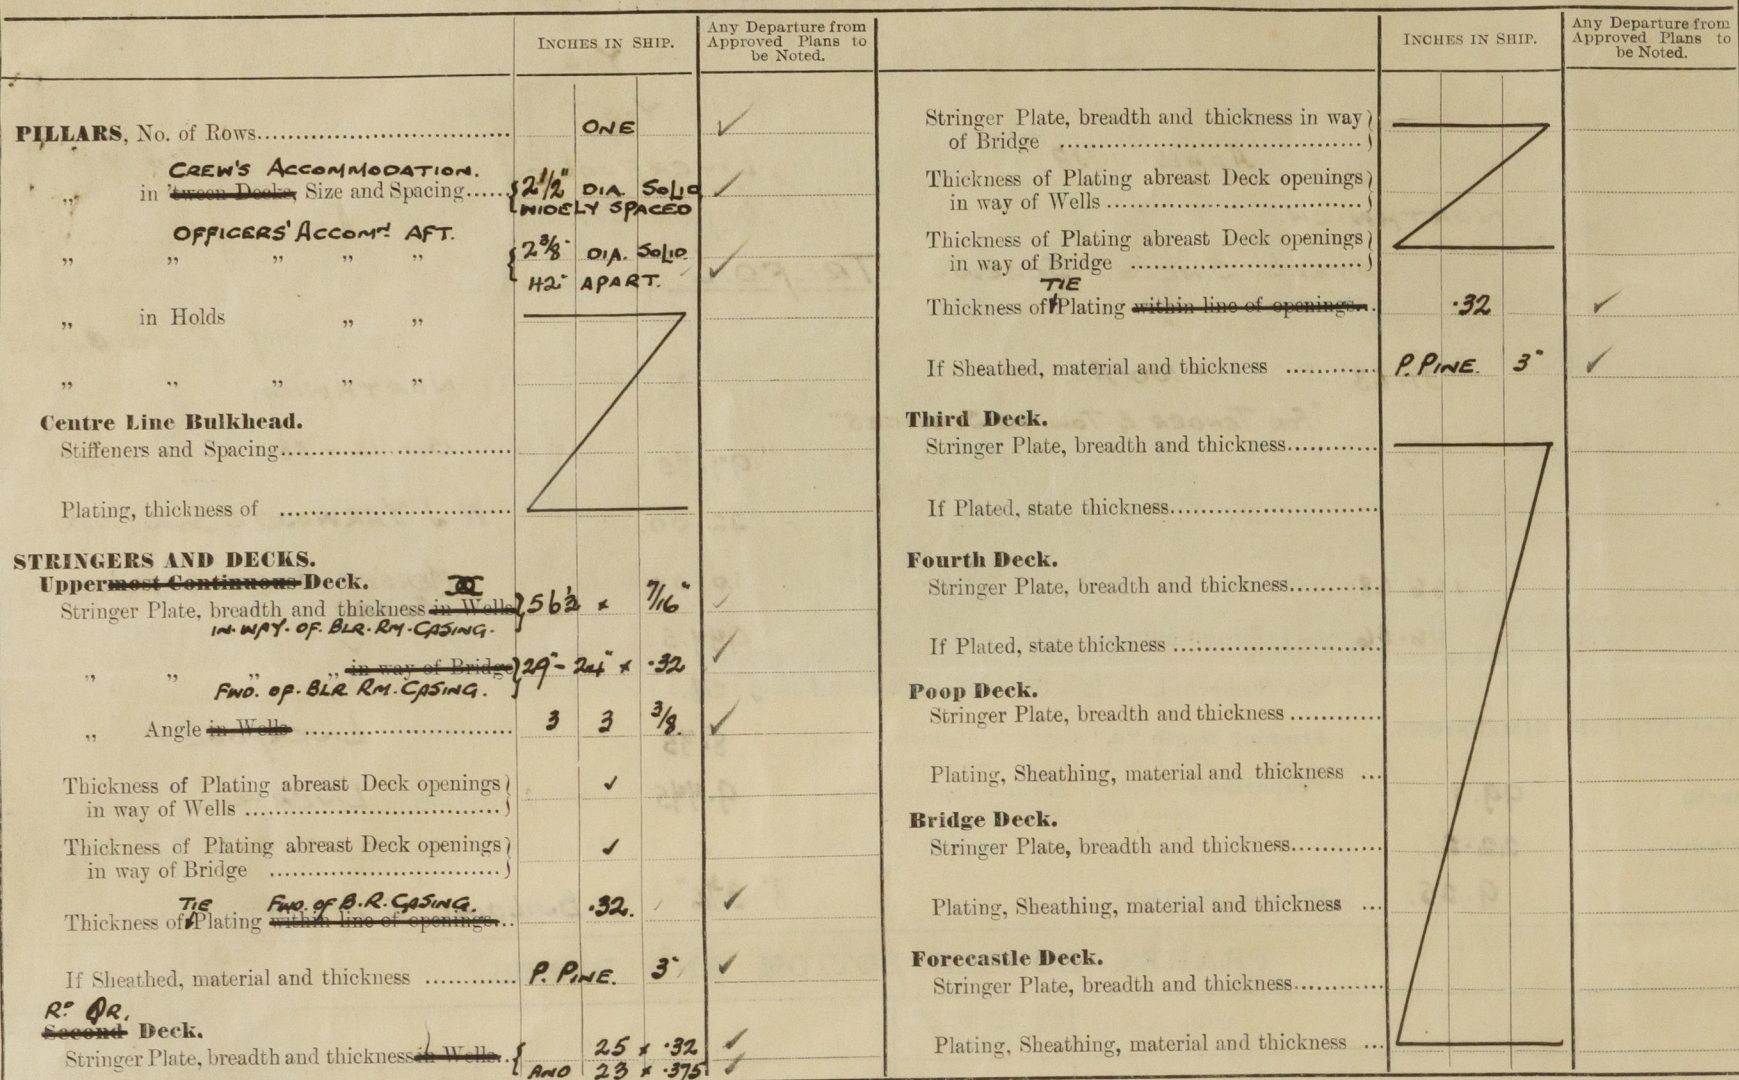 INCHES IN SHIP.
Any Departure from
Approved Plans to
be Noted.
PILLARS, No. of Rows ONE ✓
CREW'S ACCOMMODATION.
„ in 'tween Decks, Size and Spacing 2½" DIA. SOLID ✓
WIDELY SPACED
OFFICERS' ACCOMT. AFT.
„ „ „ „ „ 2⅜" DIA. SOLID.
42" APART. ✓
„ in Holds „ „
„ „ „ „ „
Centre Line Bulkhead.
Stiffeners and Spacing
Plating, thickness of
STRINGERS AND DECKS.
Uppermost Continuous Deck.
Stringer Plate, breadth and thickness in Wells 56½ x 7/16" ✓
IN. WAY. OF. BLR. RM. CASING.
„ „ „ „ in way of Bridge 29"- 24" x .32 ✓
FWD. OF. BLR RM. CASING.
„ Angle in Wells 3 3 3/8. ✓
Thickness of Plating abreast Deck openings
in way of Wells ✓
Thickness of Plating abreast Deck openings
in way of Bridge ✓
TIE FWD. OF B.R. CASING.
Thickness of Plating within line of openings .32. ✓
If Sheathed, material and thickness P. PINE. 3" ✓
RD QR.
Second Deck.
Stringer Plate, breadth and thickness in Wells 25 x .32 ✓
AND 23 x .375 ✓
INCHES IN SHIP.
Any Departure from
Approved Plans to
be Noted.
Stringer Plate, breadth and thickness in way
of Bridge
Thickness of Plating abreast Deck openings
in way of Wells
Thickness of Plating abreast Deck openings
in way of Bridge
TIE
Thickness of Plating within line of openings .32 ✓
If Sheathed, material and thickness P. PINE. 3" ✓
Third Deck.
Stringer Plate, breadth and thickness
If Plated, state thickness
Fourth Deck.
Stringer Plate, breadth and thickness
If Plated, state thickness
Poop Deck.
Stringer Plate, breadth and thickness
Plating, Sheathing, material and thickness
Bridge Deck.
Stringer Plate, breadth and thickness
Plating, Sheathing, material and thickness
Forecastle Deck.
Stringer Plate, breadth and thickness
Plating, Sheathing, material and thickness